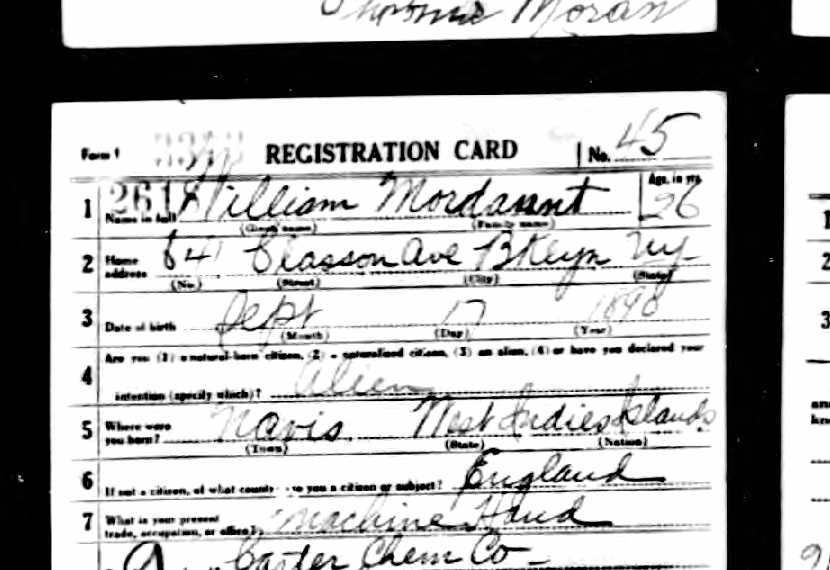 Thomas Moran
Form 1 REGISTRATION CARD No. 45
1 2618 William Mordaunt Age, in yrs. 26
Name in full (Given name) (Family name)
2 Home address 641 Classon Ave Bklyn NY
(No.) (Street) (City) (State)
3 Date of birth Sept 17 1890
(Month) (Day) (Year)
4 Are you (1) a natural-born citizen, (2) a naturalized citizen, (3) an alien, (4) or have you declared your
intention (specify which)? Alien
5 Where were you born? Navis West Indies Islands
(Town) (State) (Nation)
6 If not a citizen, of what country are you a citizen or subject? England
7 What is your present trade, occupation, or office? Machine Hand
Carter Chem Co